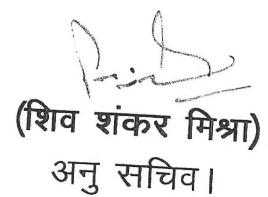 (शिव शंकर मिश्रा)
अनु सचिव।